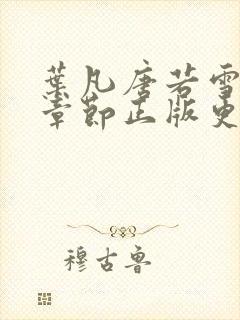 葉凡唐若雪
章節正版更
穆古魯